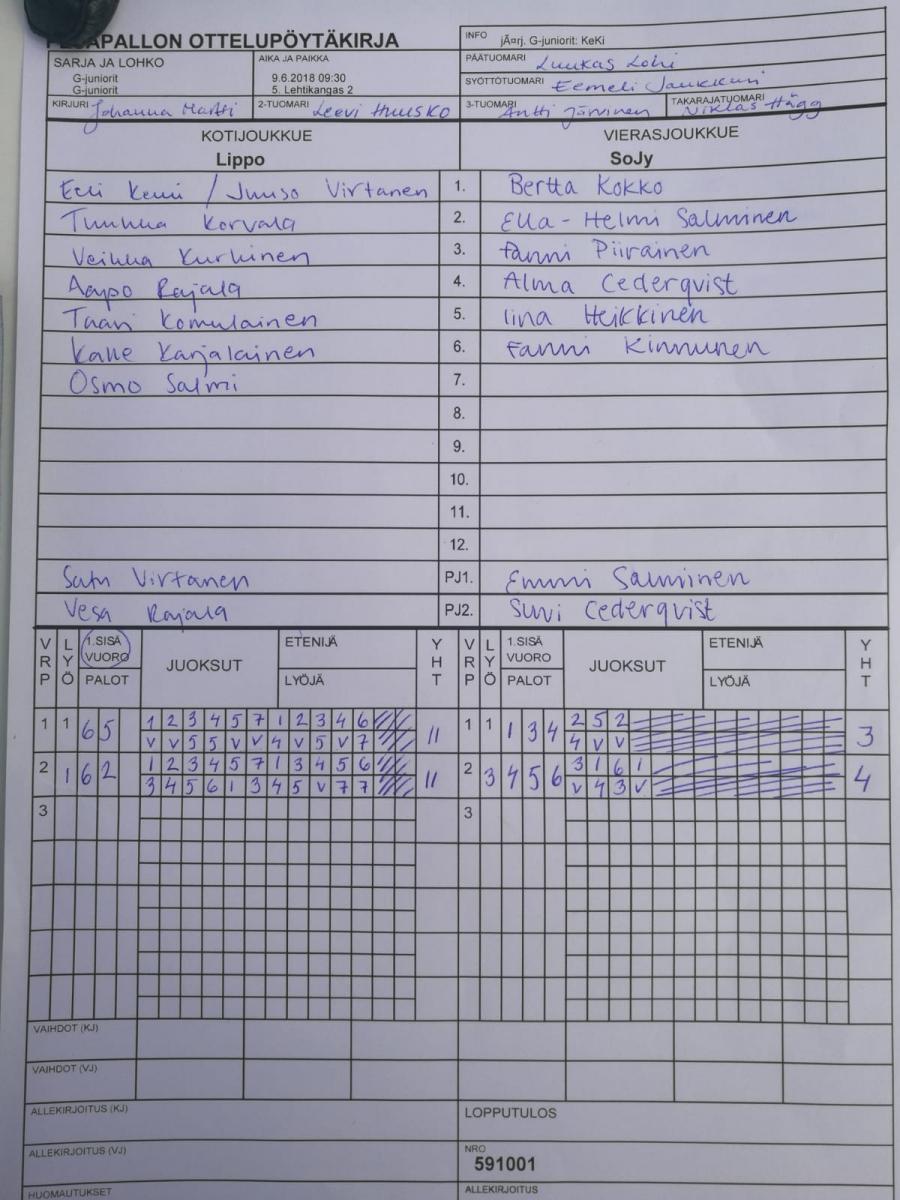 PESÄPALLON OTTELUPÖYTÄKIRJA
INFO jÃ¤rj. G-juniorit: KeKi
SARJA JA LOHKO
G-juniorit
G-juniorit
AIKA JA PAIKKA
9.6.2018 09:30
5. Lehtikangas 2
PÄÄTUOMARI Luukas Lohi
SYÖTTÖTUOMARI Eemeli Jaukkuri
KIRJURI Johanna Martti 2-TUOMARI Leevi Huusko 3-TUOMARI Antti Järvinen TAKARAJATUOMARI Niklas Hägg
KOTIJOUKKUE VIERASJOUKKUE
Lippo SoJy
Eeli Kemi / Juuso Virtanen 1. Bertta Kokko
Tuukka Korvala 2. Ella-Helmi Salminen
Veikka Kurkinen 3. Fanni Piirainen
Aapo Rajala 4. Alma Cederqvist
Taavi Komulainen 5. Iina Heikkinen
Kalle Karjalainen 6. Fanni Kinnunen
Osmo Salmi 7.
8.
9.
10.
11.
12.
Satu Virtanen PJ1. Emmi Salminen
Vesa Rajala PJ2. Suvi Cederqvist
VRP LYÖ 1.SISÄ VUORO PALOT JUOKSUT ETENIJÄ LYÖJÄ YHT VRP LYÖ 1.SISÄ VUORO PALOT JUOKSUT ETENIJÄ LYÖJÄ YHT
1 1 6 5 1 2 3 4 5 7 1 2 3 4 6 11 1 1 1 3 4 2 5 2 3
V V 5 5 V V 4 V 5 V 7 4 V V
2 1 6 2 1 2 3 4 5 7 1 3 4 5 6 11 2 3 4 5 6 3 1 6 1 4
3 4 5 6 1 3 4 5 V 7 7 V 4 3 V
3 3
VAIHDOT (KJ)
VAIHDOT (VJ)
ALLEKIRJOITUS (KJ) LOPPUTULOS
ALLEKIRJOITUS (VJ) NRO
591001
HUOMAUTUKSET ALLEKIRJOITUS